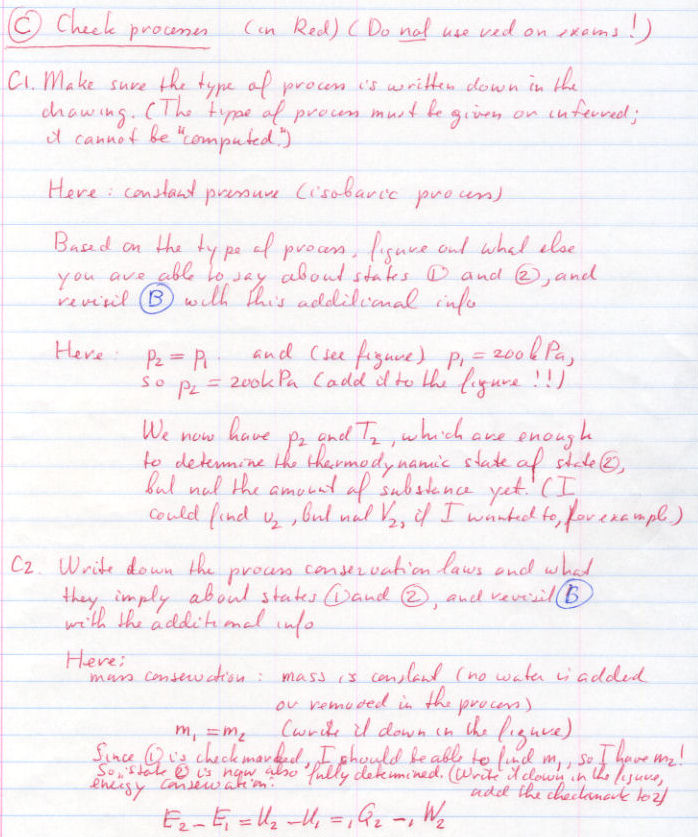 Ⓒ Check processes (in Red) (Do not use red on exams!)
C1. Make sure the type of process is written down in the
drawing. (The type of process must be given or inferred;
it cannot be "computed.")
Here: constant pressure (isobaric process)
Based on the type of process, figure out what else
you are able to say about states ① and ②, and
revisit Ⓑ with this additional info
Here: p₂ = p₁. and (see figure) p₁ = 200 kPa,
so p₂ = 200kPa (add it to the figure!!)
We now have p₂ and T₂, which are enough
to determine the thermodynamic state of state ②,
but not the amount of substance yet. (I
could find υ₂, but not V₂, if I wanted to, for example.)
C2. Write down the process conservation laws and what
they imply about states ① and ②, and revisit Ⓑ
with the additional info
Here:
mass conservation: mass is constant (no water is added
or removed in the process)
m₁ = m₂ (write it down in the figure)
Since ① is checkmarked, I should be able to find m₁, so I have m₂!
So, state ② is now also fully determined. (Write it down in the figure,
add the checkmark to 2)
energy conservation:
E₂ – E₁ = U₂ – U₁ = ₁Q₂ – ₁W₂